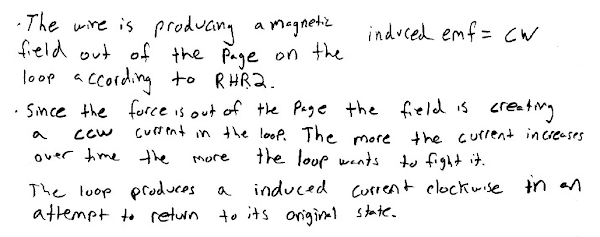 · The wire is producing a magnetic
field out of the page on the
loop according to RHR2.
induced emf = CW
· Since the force is out of the page the field is creating
a ccw current in the loop. The more the current increases
over time the more the loop wants to fight it.
The loop produces a induced current clockwise in an
attempt to return to its original state.